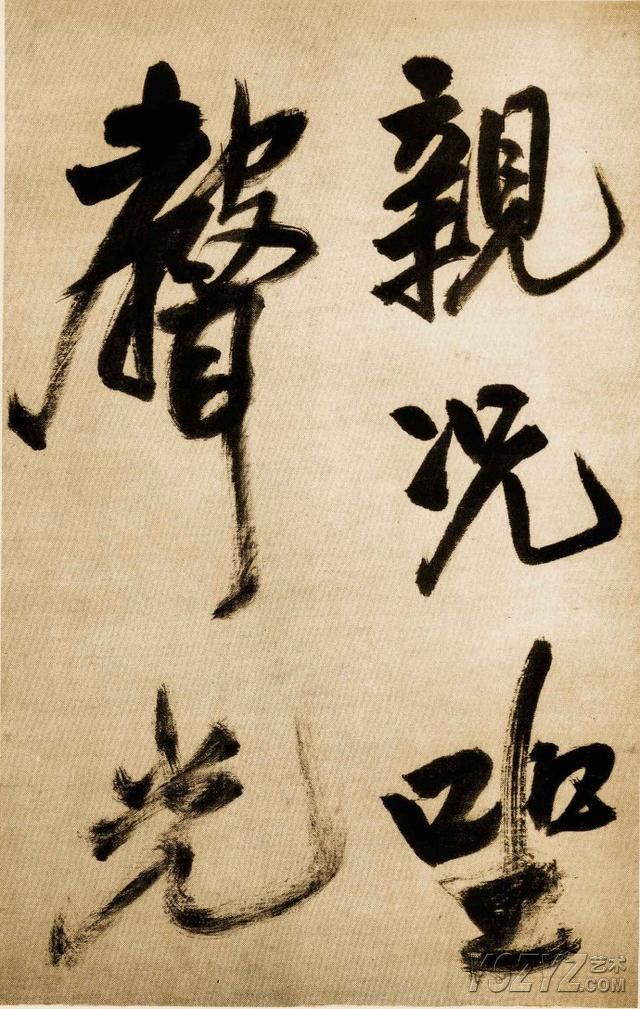 親況坐
聲光
YSZYZ艺术
.COM